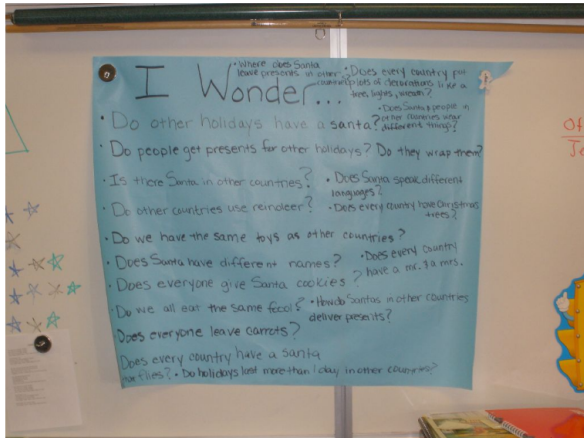 I Wonder...
• Where does Santa
leave presents in other
countries?
• Does every country put
lots of decorations like a
tree, lights, wreath?
• Does Santa & people in
other countries wear
different things?
• Do other holidays have a santa?
• Do people get presents for other holidays? Do they wrap them?
• Is there Santa in other countries?
• Does Santa speak different
languages?
• Do other countries use reindeer?
• Does every country have Christmas
trees?
• Do we have the same toys as other countries?
• Does Santa have different names?
• Does every country
have a mr. & a mrs.
• Does everyone give Santa cookies?
• Do we all eat the same food?
• How do Santas in other countries
deliver presents?
Does everyone leave carrots?
Does every country have a santa
flies? • Do holidays last more than 1 day in other countries?